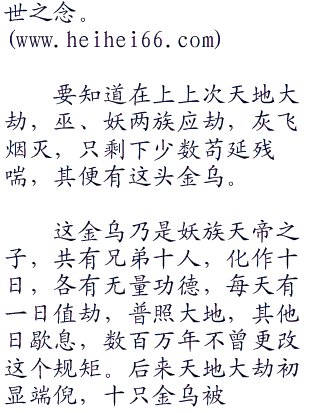 世之念。
(www.heihei66.com)
要知道在上上次天地大
劫，巫、妖两族应劫，灰飞
烟灭，只剩下少数苟延残
喘，其便有这头金乌。
这金乌乃是妖族天帝之
子，共有兄弟十人，化作十
日，各有无量功德，每天有
一日值劫，普照大地，其他
日歇息，数百万年不曾更改
这个规矩。后来天地大劫初
显端倪，十只金乌被